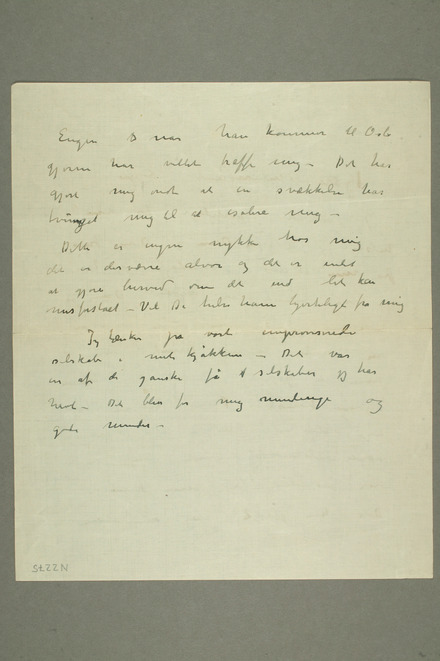 Eugen S når han kommer til Oslo
gjerne har villet træffe mig – Det har
gjort mig ondt at en svækkelse har
tvunget mig til at isolere mig –
Dette er ingen nykke hos mig
det er desværre alvor og det er
at gjøre besværd om det end let kan
misforståes – Vil De hilse ham hjerteligst fra mig
Jeg tænker på vort improviserede
selskab i mit kjøkken – Det var
en af de ganske få selskaber jeg har
havt – Det blev for mig minderige og
gode minder –
N 2275